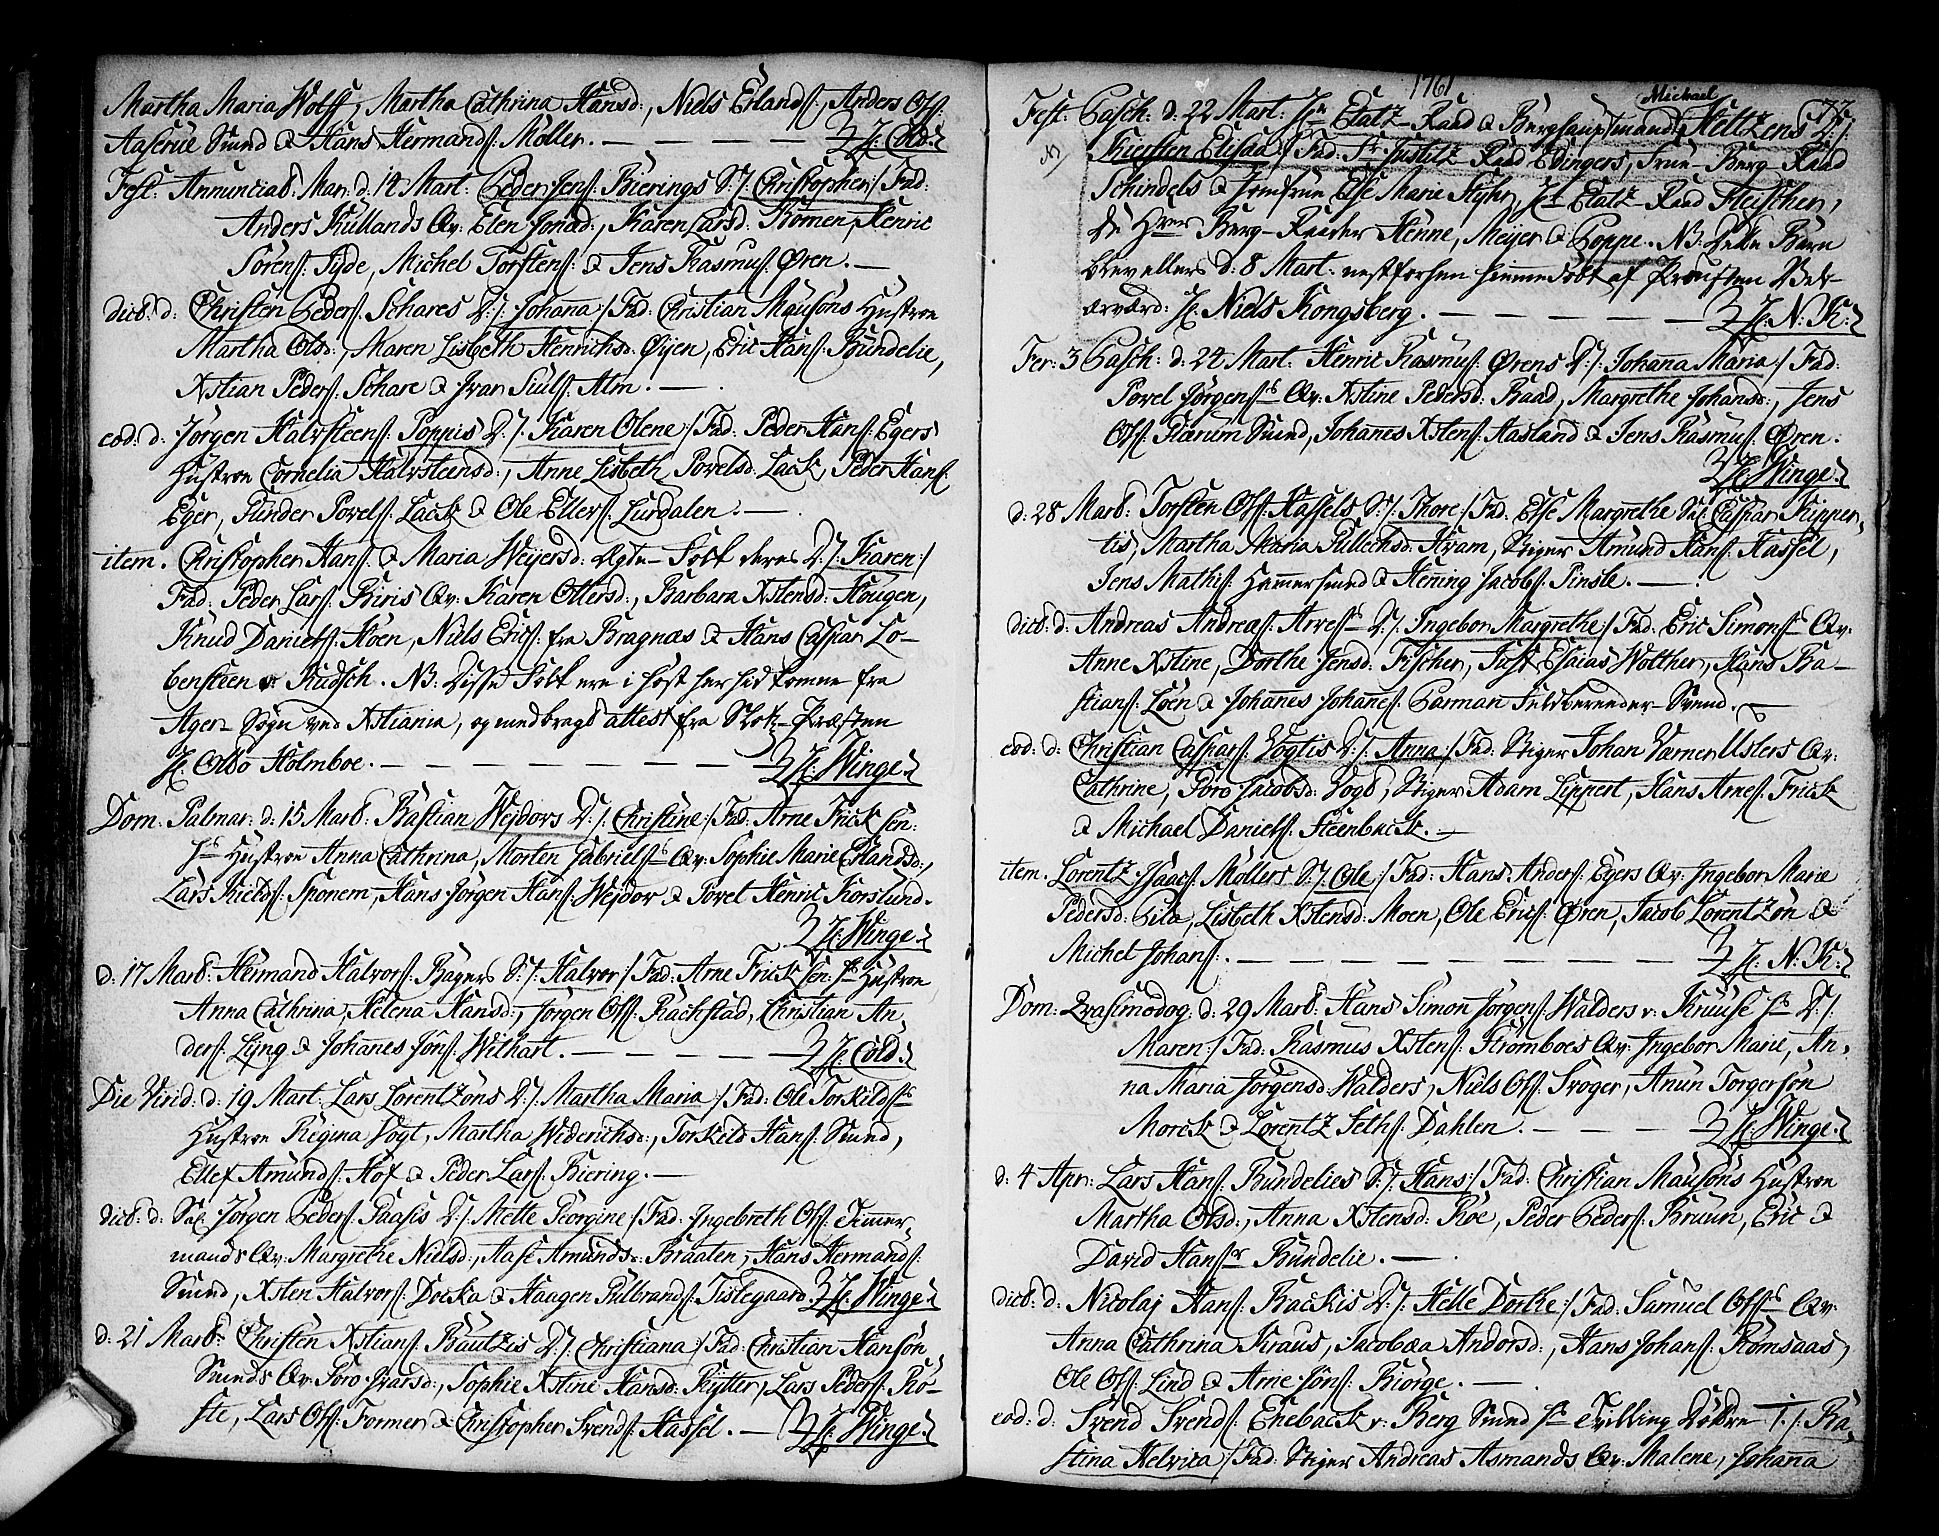 Martha Maria Wolff, Martha Cathrina Hansd:, Niels Erlands:, Anders Ols:
Aaserüe Smed & Hans Hermands: Møller. — — — — — H: Cold.
Fest: Annunciat: Mar: d: 14 Mart: Peder Jens: Bierings S: /: Christopher :/ Fad:
Anders Kullands Qv: Elen Jonæd:, Karen Larsd: Komen, Henric
Sörens: Tyde, Michel Torstens: & Jens Rasmus: Øren. —
dict: d: Christen Peders: Schares D: /: Johana :/ Fad: Christian Mausöns Hustroe
Martha Olsd:, Maren Lisbeth Henrichsd: Øyen, Eric Hans: Bundelie,
Xstian Peders: Schare & Ivar Siuls: Alm. —
eod: d: Jørgen Halvsteens: Poppis D: /: Karen Olene :/ Fad: Peder Hans: Egers
Hustroe Cornelia Halvsteensd:, Anne Lisbeth Povelsd: Lack, Peder Hans:
Eger, Gunder Povels: Lack & Ole Ellers: Lurdalen. —
item. Christopher Hans: & Maria Weyersd: Ægte-Folk deres D: /: Karen :/
Fad: Peder Lars: Biris Qv: Karen Ottersd:, Barbara Xstensd: Hougen,
Knud Daniels: Hoen, Niels Erics: fra Bragnæs & Hans Caspar Lo-
bensteen v: Rudsch. NB: Disse Folk ere i høst her hid komne fra
Agers Sogn ved Xstiania, og medbragt attest fra Slots-Præsten
H: Otto Holmboe. — — — — — — — H: Winge.
Dom: Palmar: d: 15 Mart: Bastian Wejdors D: /: Christine :/ Fad: Arne Frick sen:
hs Hustroe Anna Cathrina, Morten Gabriels: Qv: Sophie Marie Erlandsd:,
Lars Kields: Sponem, Hans Jörgen Hans: Wejdor & Povel Henric Korslund.
H: Winge.
d: 17 Mart: Hermand Halvors: Bagers S: /: Halvor :/ Fad: Arne Frick sen: hs Hustroe
Anna Cathrina, Helena Hansd:, Jørgen Ols: Rachstad, Christian An-
ders: Ljng & Johanes Jöns: Withart. — — — — — H: Cold.
Die Virid: d: 19 Mart: Lars Lorentzöns D: /: Martha Maria :/ Fad: Ole Torkilds:
Hustroe Regina Vogt, Martha Widerichsd:, Torkild Hans: Smed,
Ellef Amunds: Hof & Peder Lars: Biering. —
dict: d: Sal: Jörgen Peders: Paasis D: /: Mette Georgine :/ Fad: Ingebreth Ols: Timmer-
mands Qv: Margrethe Nielsd:, Aase Amundsd: Braaten, Hans Hermands:
Smed, Xsten Halvors: Docka & Haagen Gulbrands: Tislegaard. H: Winge.
d: 21 Mart: Christen Xstians: Bautzis D: /: Christiana :/ Fad: Christian Hansön
Smeds Qv: Goro Ivarsd:, Sophie Xstine Hansd: Rytter, Lars Peders: Rö-
ste, Lars Ols: Former & Christopher Svends: Hassel. — H: Winge.
1761
77
Michael
Fest: Pasch: d: 22 Mart: Hr Etatz-Raad & Berghauptmand Heltzens D: /:
N/ Kiersten Elisaa :/ Fad: Fr Justitz-Raad Edingers, Frue-Berg Raad
Schindels & Jomfrue Else Marie Styhr, Hr Etatz-Raad Fleischer,
De Hrrer Berg-Raader Henne, Meyer & Poppe. NB: Dette Barn
blev ellers d: 8 Mart: nestforhen hiemmedøbt af Prousten Vel-
ærværd: H: Niels Kongsberg. — — — — — H: N: K:
Fer: 3 Pasch: d: 24 Mart: Henric Rasmus: Ørens D: /: Johanna Maria :/ Fad:
Povel Jörgens: Qv: Xstine Pedersd: Baad, Margrethe Johansd:, Jens
Ols: Smed, Johanes Xstens: Aasland & Jens Rasmus: Øren.
H: Winge.
d: 28 Mart: Torsten Ols: Hassels S: /: Thore :/ Fad: Else Margrethe Sal: Caspar Kipper-
tis, Martha Maria Gullechsd: Hvam, Stiger Amund Hans: Hassel,
Jens Mathis: Hamersmed & Hening Jacobs: Pinsle. —
dict: d: Andreas Andreæs: Arves: D: /: Ingebor Margrethe :/ Fad: Eric Simons: Qv:
Anne Xstine, Dorthe Jensd: Fischer, Just Esaias Wolther, Hans Ba-
stians: Loen & Johannes Johanes: Garman Feldbereder-Svend. —
eod: d: Christian Caspars: Vogtis D: /: Anna :/ Fad: Stiger Johan Varner Uslers Qv:
Cathrine, Goro Jacobsd: Vogt, Stiger Adam Lippert, Hans Arnes: Frick
& Michael Daniels: Steenback. —
item. Lorentz Isaacs: Möllers S: /: Ole :/ Fad: Hans Anders: Egers Qv: Ingebor Marie
Pedersd: Pila, Lisbeth Xstensd: Moen, Ole Erics: Øren, Jacob Lorentzön &
Michel Johans: — — — — — — — H: N: K:
Dom: Qvasimodog: d: 29 Mart: Hans Simon Jörgens: Walders v: Knuuse hs D: /:
Maren :/ Fad: Rasmus Xstens: Strömboes Qv: Ingebor Marie, An-
na Maria Jörgensd: Walders, Niels Ols: Svoger, Anun Torgersön
Morck & Lorentz Seths: Dahlen. — — — — H: Winge.
d: 4 Apr: Lars Hans: Bundelies S: /: Hans :/ Fad: Christian Mausöns Hustroe
Martha Olsd:, Anna Xstensd: Röe, Peder Peders: Bruun, Eric &
David Hansr Bundelie. —
dict: d: Nicolaj Hans: Backis D: /: Helle Dorthe :/ Fad: Samuel Ols: Qv:
Anna Cathrina Kraus, Jacobæa Andorsd:, Hans Johans: Romsaas,
Ole Ols: Lind & Arne Jöns: Biorge. —
eod: d: Svend Svends: Eneback v: Berg Smed hs Tvilling Døttre 1. /: Ba-
stina Helvica :/ Fad: Stiger Andreas Asmands Qv: Malene, Johanna